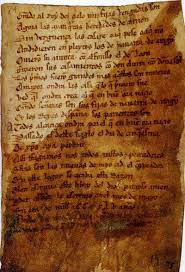 Grado al rey del çielo mis fijas vengadas son
Agora las ayan quitas heredades de carrion
Sin verguença las casare o a qui pese o a qui non
Andidieron en pleytos los de nauarra e de aragon
Ouieron su aiunta con alfonsso el de leon
Fizieron sus casamientos con don eluira e con doña sol
Los primos fueron grandes mas aquestos son miiores
A mayor ondra las casa que lo que primero fue
Ved qual ondra creçe al que en buen ora naçio
Quando señoras son sus fijas de nauarra e de aragon
Oy los reyes despaña sos parientes son
A todos alcança ondra por el que en buen ora naçio
Passado es deste sieglo el dia de
Assi ffagamos nos todos iustos e peccadores
Estas son las nueuas de mio
En este logar se acaba esta razon
Quien escriuio este libro del dios parayso amen
Per abbat le escriuio en el mes de mayo
En era de mill e años